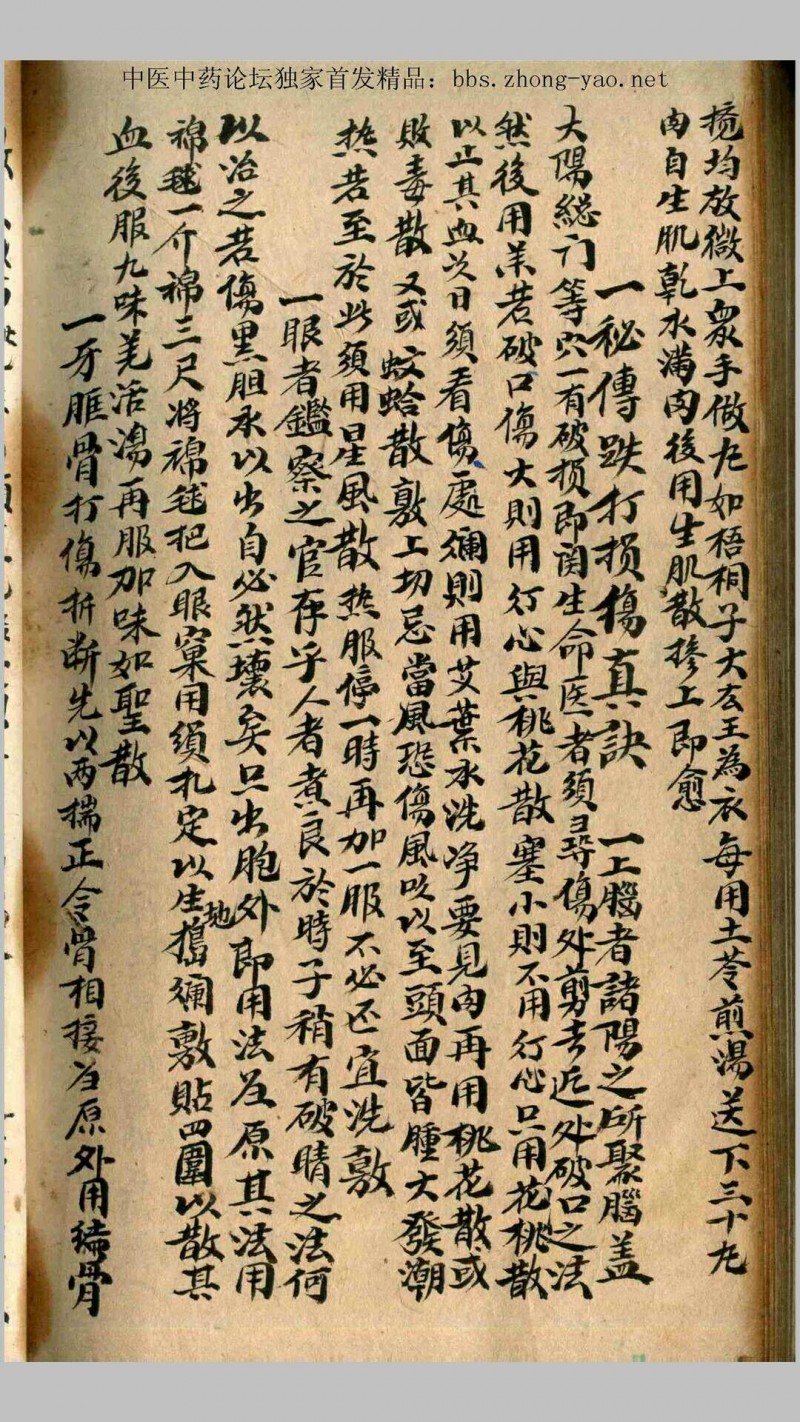 中医中药论坛独家首发精品：bbs.zhong-yao.net
撹均放微上眾手做九如梧桐子大玄王為衣每用土苓煎湯送下三十九
肉自生肌乾水满肉後用生肌散摻上即愈
一秘傳跌打损傷真訣 一上腦者諸陽之所聚腦盖
大陽総门等穴一有破损即関生命医者須尋傷处剪去近处破口之法
然後用茶若破口傷大則用灯心與桃花散塞小則不用灯心只用花桃散
以止其血次日須看傷處爛則用艾葉水洗净要見肉再用桃花散或
敗毒散又或蚊蛤散敷上切忌當風恐傷風以以至頭面皆腫大發潮
热若至於此須用星風散热服停一時再加一服不必还宜洗敷
一眼者鑑察之官存乎人者煮良於時子稍有破睛之法何
以治之若傷黑胆水以出自必然壊矣只出胞外即用法还原其法用
棉毬一介棉三尺将棉毬把入眼窠用須扎定以生地搗爛敷貼四圍以散其
血後服九味羌活湯再服加味如聖散
一牙䐃骨打傷折断先以两揣正令骨相接还原外用接骨